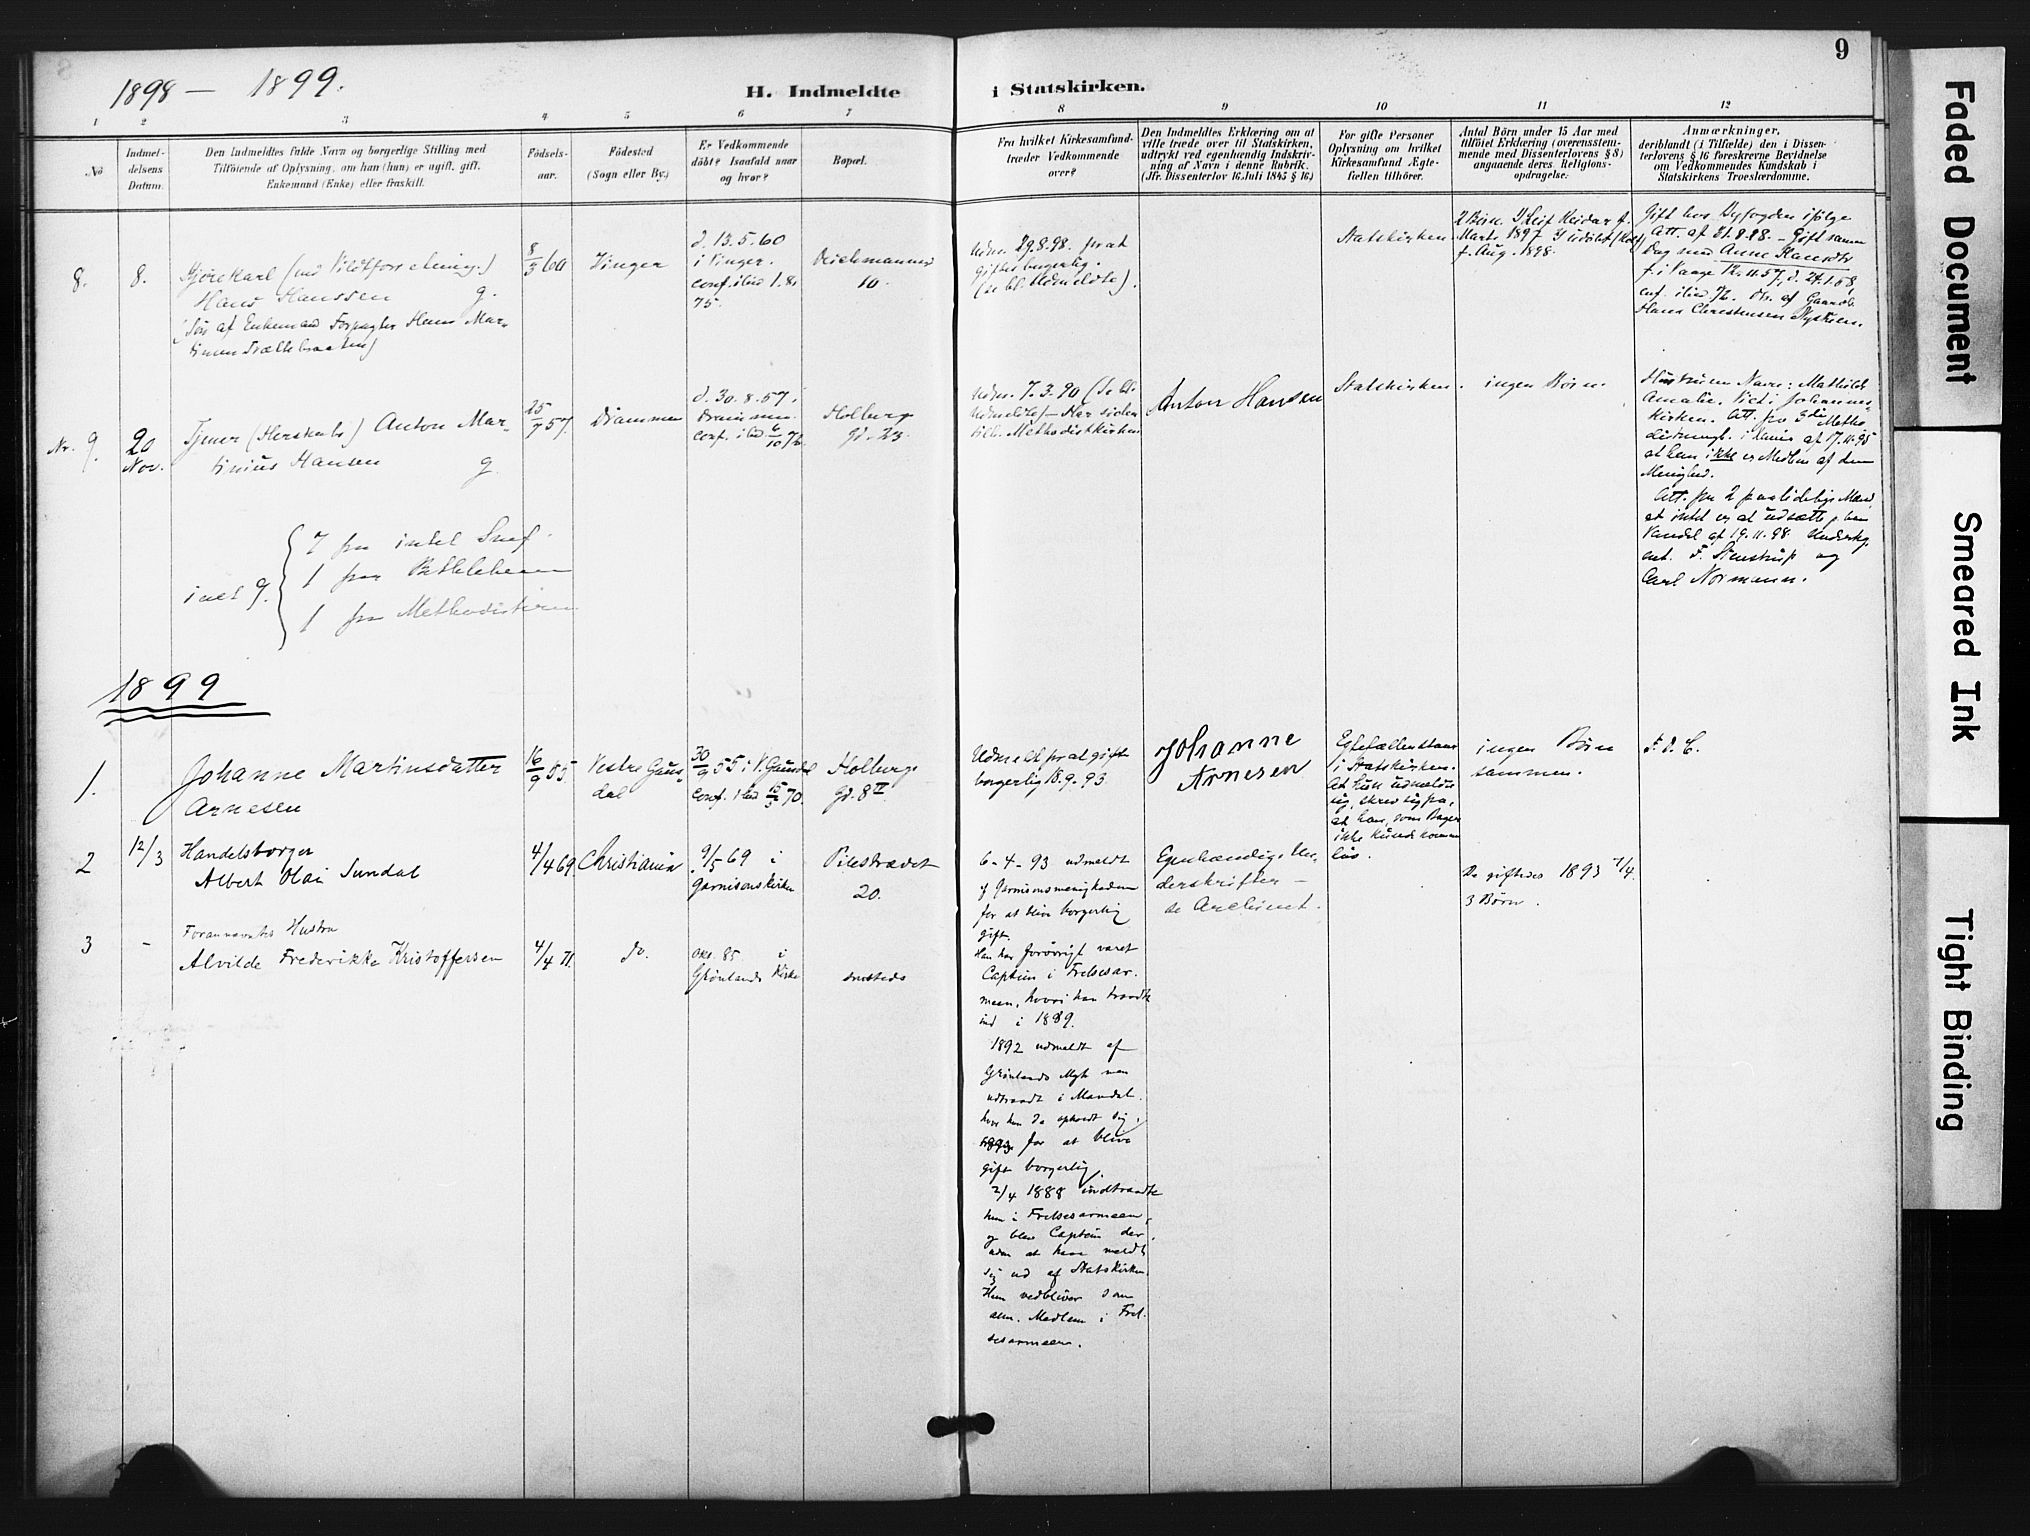 1898 – 1899.
H. Indmeldte i Statskirken.
9
1 2 3 4 5 6 7 8 9 10 11 12
No
Indmel-
delsens
Datum.
Den Indmeldtes fulde Navn og borgerlige Stilling med
Tilföiende af Oplysning, om han (hun) er ugift, gift,
Enkemand (Enke) eller fraskilt.
Födsels-
aar.
Födested
(Sogn eller By.)
Er Vedkommende
döbt? Isaafald naar
og hvor?
Bopæl.
Fra hvilket Kirkesamfund-
træder Vedkommende
over?
Den Indmeldtes Erklæring om at
ville træde over til Statskirken,
udtrykt ved egenhændig Indskriv-
ning af Navn i denne Rubrik.
(Jfr. Dissenterlov 16 Juli 1845 § 16.)
For gifte Personer
Oplysning om hvilket
Kirkesamfund Ægte-
fællen tilhörer.
Antal Börn under 15 Aar med
tilföiet Erklæring (overensstem-
mende med Dissenterlovens § 8)
angaaende deres Religions-
opdragelse.
Anmærkninger,
deriblandt (i Tilfælde) den i Dissen-
terlovens § 16 foreskrevne Bevidnelse
om Vedkommendes Kundskab i
Statskirkens Troeslærdomme.
8.
8.
Hans Hanssen g.
8/3 60
Vinger
d. 13.5.60
i Vinger.
conf. ibid 1.8.
75.
10.
Udm. 29.8.98. for at
giftes borgerlig.
(se bl. Udmeldte).
Statskirken.
Marts 1897
f. Aug. 1898.
Gift hos Byfogden ifølge
Att. af 31.8.98. – Gift samme
Dag med Anne Hansdtr
Hans Christensen
Nr. 9.
20
Nov.
Tjener Anton Mar-
tinius Hansen g
25/7 57
Drammen
d. 30.8.57.
Drammen.
conf. ibid. 6/10 72
Holbergs
Gd. 23.
Udm. 7.3.90 (Se bl.
Udmeldte) – Har siden
tilh. Methodistkirken
Anton Hansen
Statskirken.
ingen Børn.
Hustruens Navn: Mathilde
Amalie. Viet i Johannes-
kirken. Att. fra 3die Metho-
distmengh. i Xania af 17.11.95
at han ikke er Medlem af den
Menighed.
Att. fra 2 paalidelige Mænd
at intet er at udsætte p. hans
Vandel af 19.11.98. Underskr.
Stenstrup og
Carl Normann.
ialt 9.
7 fra intet Smf.
1 fra Bethlehem
1 fra Methodistkirken
1899
1.
Johanne Martinsdatter
Arnesen
16/9 55
Vestre Gaus-
dal
30/9 55 i V. Gausdal
Conf. ibid 70.
Holbergs
Gd. 8 II
Udmeldt for at gift
borgerlig 18.9.93.
Johanne
Arnesen
Egtefællen staar
i Statskirken.
At hun udmeldte
sig, skrev sig fra,
at han, som Bager
ikke kunde komme
løs.
ingen Børn
sammen.
F. d. C.
2
12/3
Handelsborger
Albert Olai Sundal
4/4 69
Christiania
9/5 69 i
Garnisonskirken
Pilestrædet
20.
6-4-93 udmeldt
af Garnisonsmenigheden
for at blive borgerlig
gift.
Han har forøvrigt været
Captein i Frelsesar-
meen, hvori han traadte
ind i 1889.
Egenhændige Un-
derskrifter –
se Archivet.
De giftedes 1893 7/4.
3 Børn.
3
-
Forannævntes Hustru
Alvilde Frederikke Kristoffersen
4/4 71.
do.
Okt. 85. i
Grønlands Kirke
smsteds
1892 udmeldt af
Grønlands Mgh men
udtraadt i Mandal.
hvor hun da opholdt sig,
1893 for at blive
gift borgerlig.
2/4 1888 indtraadte
hun i Frelsesarmeen,
og blev Captein der,
uden at have meldt
sig ud af Statskirken.
Hun vedbliver som
alm. Medlem i Frel-
sesarmeen.
Faded Document
Smeared Ink
Tight Binding